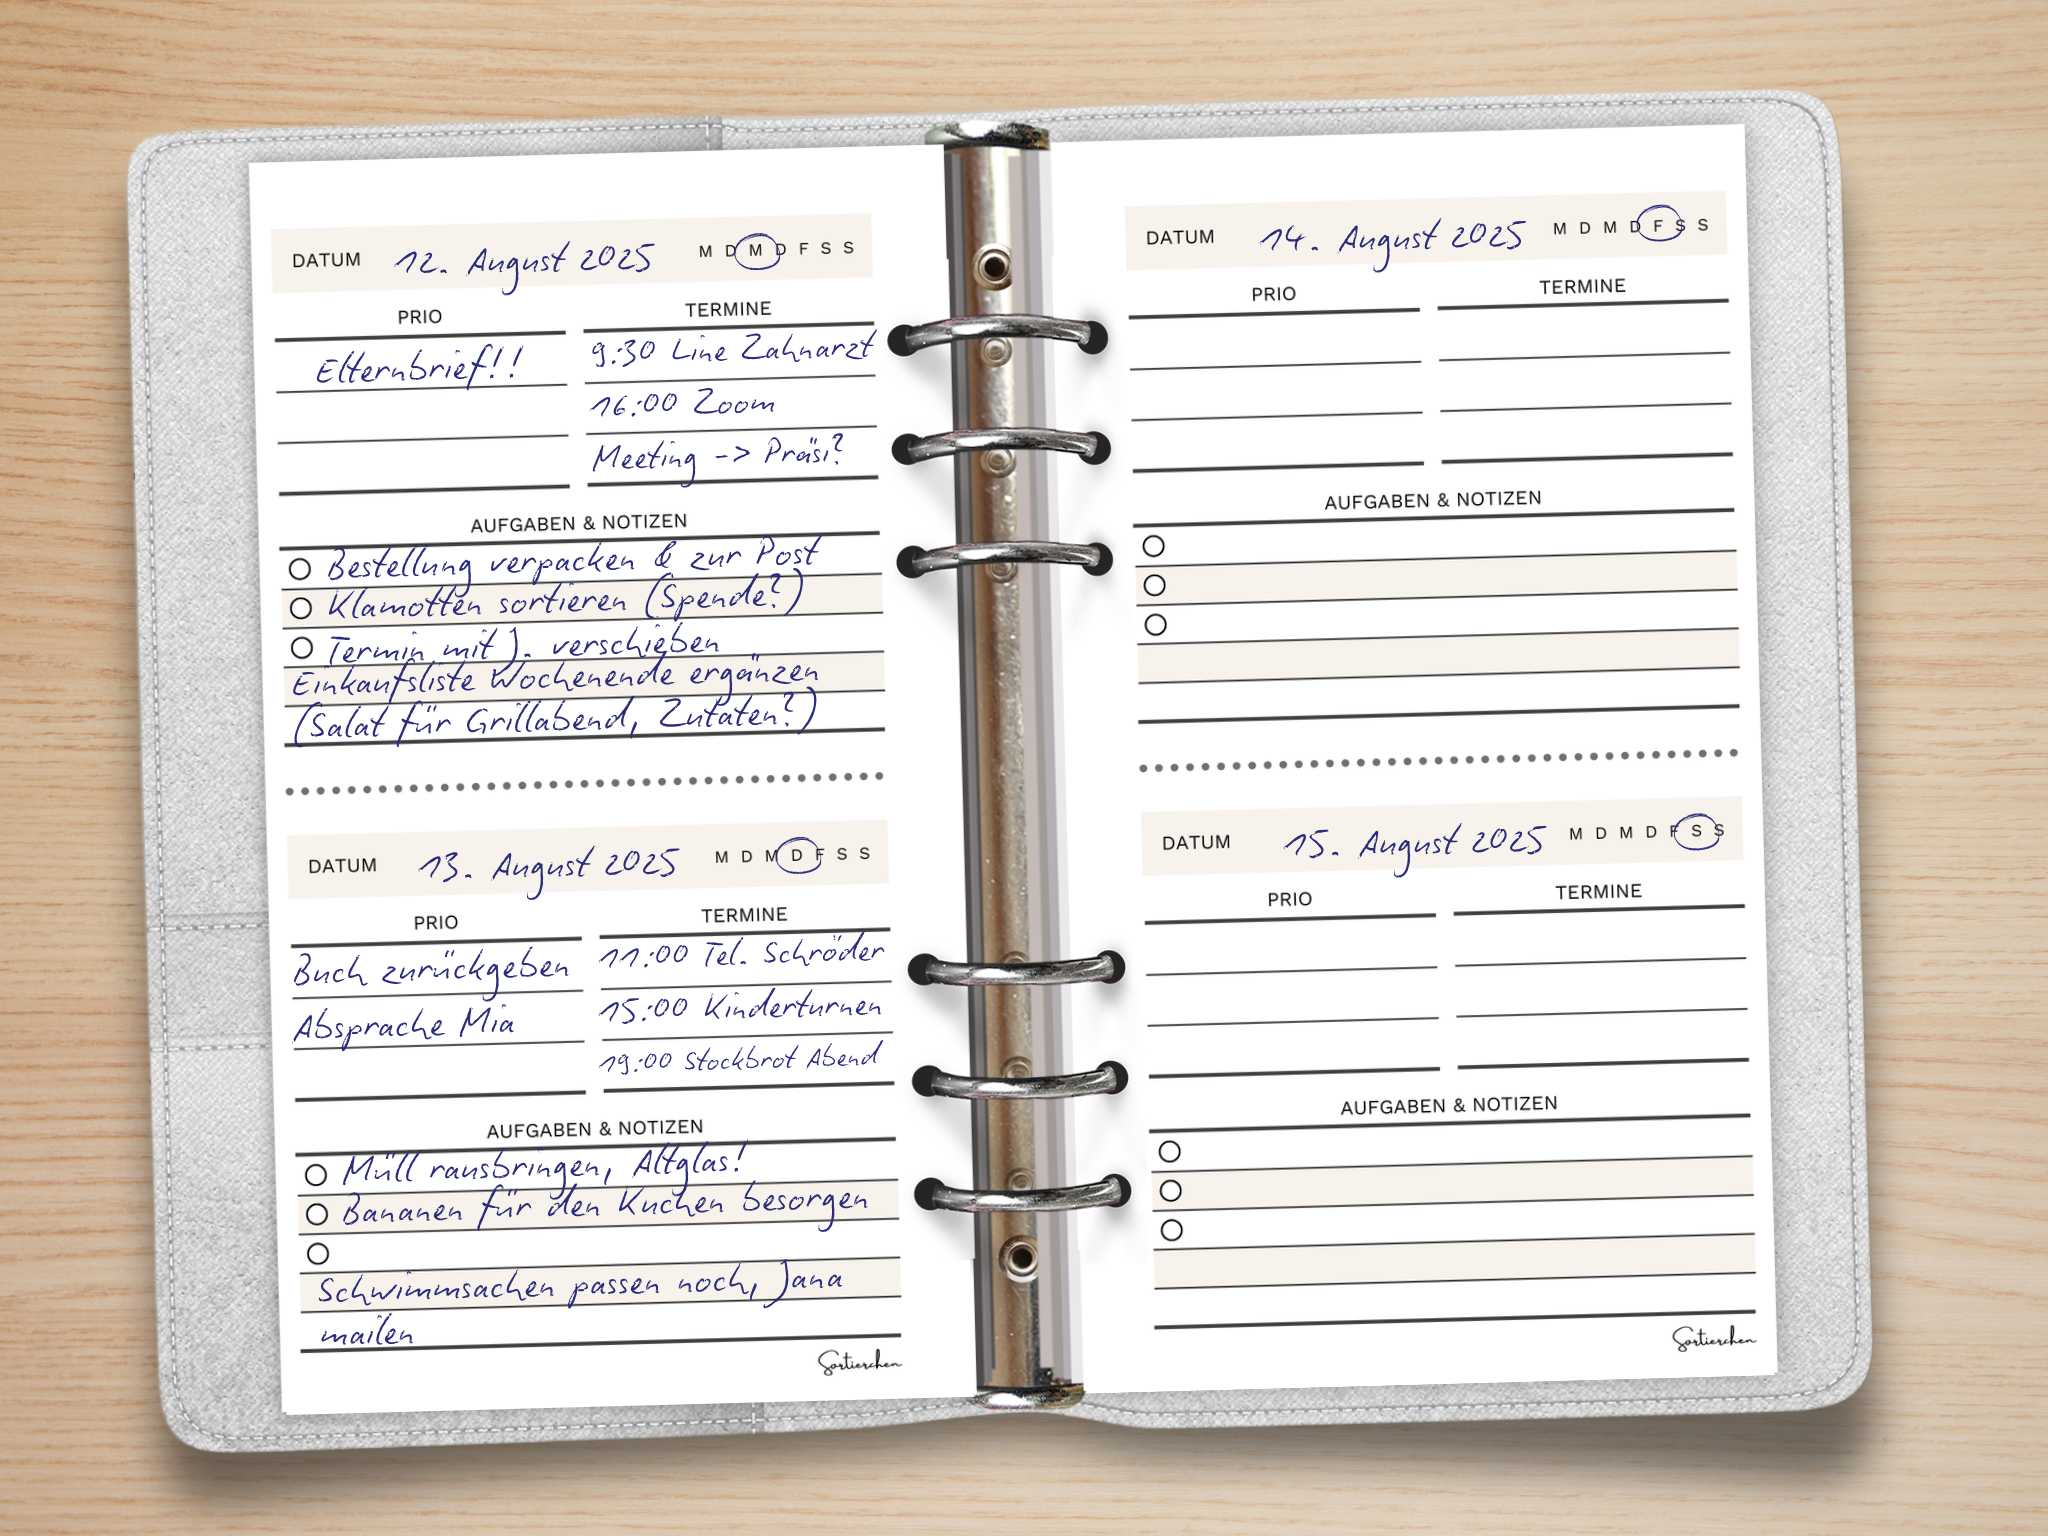 DATUM 12. August 2025 M D M D F S S
PRIO
Elternbrief!!
TERMINE
9:30 Line Zahnarzt
16:00 Zoom
Meeting -> Präsi?
AUFGABEN & NOTIZEN
Bestellung verpacken & zur Post
Klamotten sortieren (Spende?)
Termin mit J. verschieben
Einkaufsliste Wochenende ergänzen
(Salat für Grillabend, Zutaten?)
DATUM 13. August 2025 M D M D F S S
PRIO
Buch zurückgeben
Absprache Mia
TERMINE
11:00 Tel. Schröder
15:00 Kinderturnen
19:00 Stockbrot Abend
AUFGABEN & NOTIZEN
Müll rausbringen, Altglas!
Bananen für den Kuchen besorgen
Schwimmsachen passen noch, Jana
mailen
Sortierchen
DATUM 14. August 2025 M D M D F S S
PRIO
TERMINE
AUFGABEN & NOTIZEN
DATUM 15. August 2025 M D M D F S S
PRIO
TERMINE
AUFGABEN & NOTIZEN
Sortierchen